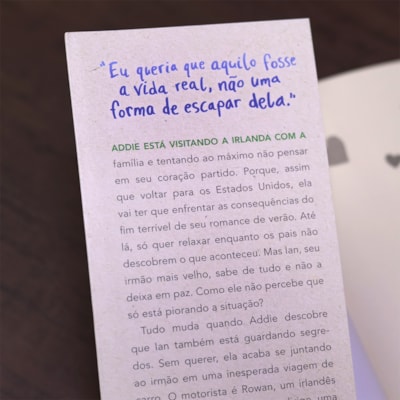 "Eu queria que aquilo fosse
a vida real, não uma
forma de escapar dela."
ADDIE ESTÁ VISITANDO A IRLANDA COM A
família e tentando ao máximo não pensar
em seu coração partido. Porque, assim
que voltar para os Estados Unidos, ela
vai ter que enfrentar as consequências do
fim terrível de seu romance de verão. Até
lá, só quer relaxar enquanto os pais não
descobrem o que aconteceu. Mas Ian, seu
irmão mais velho, sabe de tudo e não a
deixa em paz. Como ele não percebe que
só está piorando a situação?
Tudo muda quando Addie descobre
que Ian também está guardando segre-
dos. Sem querer, ela acaba se juntando
ao irmão em uma inesperada viagem de
carro. O motorista é Rowan, um irlandês
uma